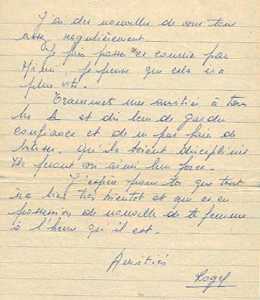 J'ai des nouvelles de vous tous
assez régulièrement.
Je fais passer ce courrier par
je pense que cela ira
plus vite.
Transmets mes amitiés à tous
les et dis leur de garder
confiance et de ne pas faire de
bêtises. qu'ils soient disciplinés
ce faisant on aime leur force.
J'espère pour toi que tout
ira bien très bientôt et que es en
possession de nouvelle de ta femme
à l'heure qu'il est.
Amitiés
Roger